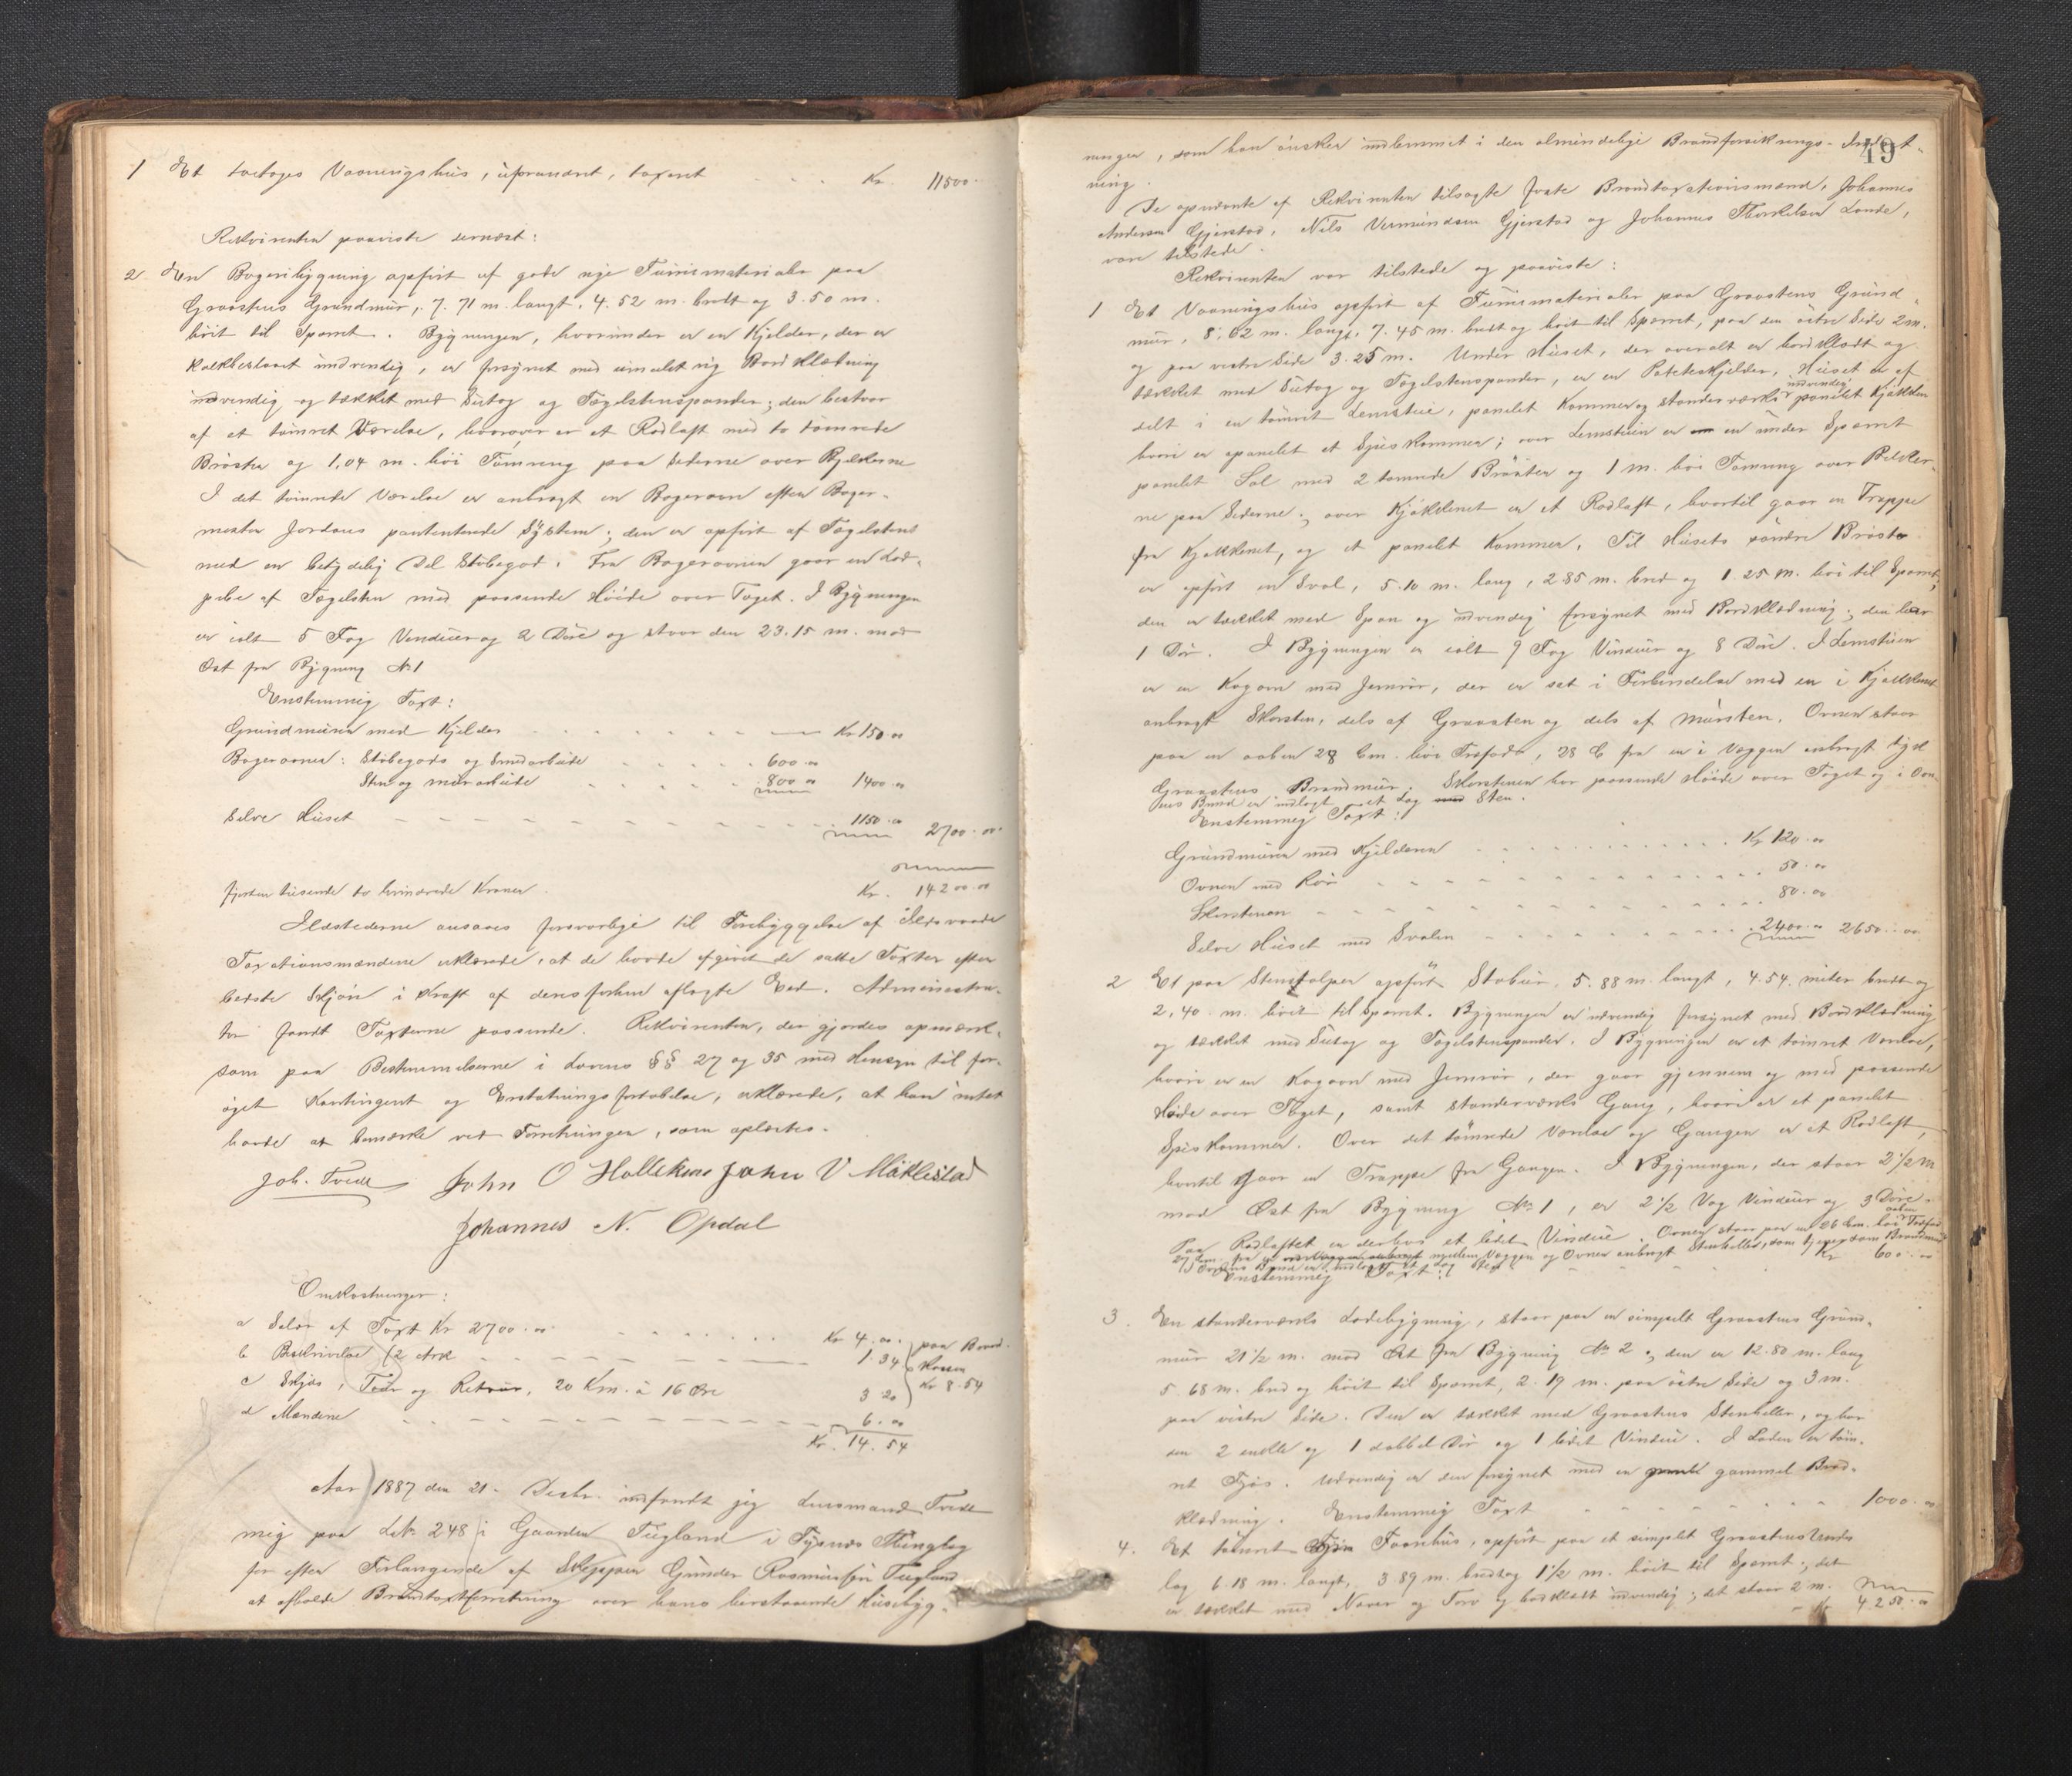 1 Et toetages Vaaningshus, uforandret, taxeret . . . Kr. 11500.
Rekvirenten paaviste dernæst:
2 En Bageribygning opført af gode nye Furumaterialer paa
Graastens Grundmur, 7.71 m. langt, 4.52 m. bredt og 3.50 m.
høit til Sparret. Bygningen, hvorunder er en Kjelder, der er
kalkbeslaaet indvendig, er forsynet med umalet ny Bordklædning
udvendig og tækket med Sutag og Tegelstenspander; den bestaar
af et tømret Værelse, hvorover er et Rodloft med to tømrede
Brøster og 1,04 m. høi Tømring paa Siderne over Bjelkerne
I det tømrede Værelse er anbragt en Bagerovn efter Bager-
mester Jordans pantenterede System; den er opført af Tegelstene
med en betydelig Del Støbegods. Fra Bagerovnen gaar en Lod-
pibe af Tegelsten med passende Høide over Taget. I Bygningen
er ialt 5 Fag Vinduer og 2 Døre og staar den 23.15 m. mod
Øst fra Bygning № 1
Enstemmig Taxt:
Grundmuren med Kjelder - - - - Kr 150.00
Bagerovnen: Støbegods og Smedarbeide . . . . 600.00
Sten og murarbeide . . . . 800.00 1400.00
Selve Huset - - - - 1150.00 2700.00
fjorten tusende to hundrede Kroner. Kr. 14200.00
Ildstederne ansaaes forsvarlige til Forebyggelse af Ildsvaade
Taxationsmændene erklærede, at de havde afgivet de satte Taxter efter
bedste Skjøn i Kraft af deres forhen aflagte Eed. Administra-
tor fandt Taxterne passende. Rekvirenten, der gjordes opmærk-
som paa Bestemmelserne i Lovens §§ 27 og 35 med Hensyn til for-
øget Kontingent og Erstatningsfortabelse, erklærede, at han intet
havde at bemærke ved Forretningen, som oplæstes.
Joh. Trede John O Hallekim John V Mæklestad
Johannes N. Opdal
Omkostninger:
a Salær af Taxt Kr 2700.00 . . . . Kr 4.00
b Beskrivelse (2 Ark - - - 1.34 paa Brand-
c Skyds, Tour og Retour, 20 Km. à 16 Øre 3.20 Kassen Kr 8.54
d Mændene - - - - 6.00
Kr. 14.54
Aar 1887 den 21. Decbr. indfandt jeg Lensmand Trede
mig paa L.№ 248 i Gaarden Tugland i Tysnæs Thinglag
for efter Forlangende af Skipper Gunder Rasmussen Tugland
at afholde Brandtaxtforretning over hans herstaaende Husebyg-
49
ninger, som han ønsker indlemmet i den almindelige Brandforsikrings-Indret-
ning.
De opnævnte af Rekvirenten tilsagte faste Brandtaxationsmænd, Johannes
Andersen Gjerstad, Nils Vermundsen Gjerstad og Johannes Thorkelsen Lande,
vare tilstede.
Rekvirenten var tilstede og paaviste:
1 Et Vaaningshus opført af Furumaterialer paa Graastens Grund-
mur, 8.62 m. langt, 7.45 m. bredt og høit til Sparret, paa den østre Side 2 m.
og paa vestre Side 3.25 m. Under Huset, der overalt er bordklædt og
tækket med Sutag og Tegelstenspander, er en Poteteskjelder, Huset er af
delt i en tømret Lemstue, panelet Kammer og standerværks indvendig panelet Kjøkken
hvori er apanelet et Spiskammer; over Lemstuen er en under Sparret
panelet Sal med 2 tømrede Brøster og 1 m. høi Tømring over Bjelker-
ne paa Siderne; over Kjøkkenet er et Rodloft, hvortil gaar en Trappe
fra Kjøkkenet, og et panelet Kammer. Til Husets søndre Brøste
er opført en Sval, 5.10 m. lang, 2.85 m. bred og 1.25 m. høi til Sparret,
den er tækket med Span og udvendig forsynet med Bordklædning; den har
1 Dør. I Bygningen er ialt 9 Fag Vinduer og 8 Døre. I Lemstuen
er en Kogovn med Jernrør, der er sat i Forbindelse med en i Kjøkkenet
anbragt Skorsten, dels af Graasten og dels af Mursten. Ovnen staar
paa en aaben 28 Cm. høi Træfod, 28 C fra en i Væggen anbragt tyk
Graastens Brandmur. Skorstenen har passende Høide over Taget og i Ovn-
ens Bund er indlagt et Lag Sten.
Enstemmig Taxt:
Grundmuren med Kjelderen . . . . Kr 120.00
Ovnen med Rør - - - - 50.00
Skorstenen - - - - 80.00
Selve Huset med Svalen - - - 2400.00 2650.00
2 Et paa Stenstolper opført Stabur, 5.88 m. langt, 4.54 meter bredt og
2,40 m. høit til Sparret. Bygningen er udvendig forsynet med Bordklædning
og tækket med Sutag og Tegelstenspander. I Bygningen er et tømret Værelse,
hvori er en Kogovn med Jernrør, der gaar gjennem og med passende
Høide over Taget, samt standerværks Gang, hvori er et panelet
Spiskammer. Over det tømrede Værelse og Gangen er et Rodloft,
hvortil gaar en Trappe fra Gangen. I Bygningen, der staar 2 1/2 m
mod Øst fra Bygning № 1, er 2 1/2 Fag Vinduer og 3 Døre.
Paa Rodloftet er derhos et lidet Vindue. Ovnen staar paa en 26 Cm. høi aaben Træfod
27 Cm. fra en mellem Væggen og Ovnen anbragt Stenhelle, som tjener som Brandmur
I Ovnens Bund er indlagt et Lag Sten.
Enstemmig Taxt: - - - Kr 600.00
3. En standerværks Ladebygning, staar paa en simpelt Graastens Grund-
mur 21 1/2 m. mod Øst fra Bygning № 2; den er 12.80 m. lang
5.68 m. bred og høit til Sparret, 2.19 m. paa østre Side og 3 m.
paa vestre Side. Den er tækket med Graastens Stenheller, og har
den 2 enkelte og 1 dobbel Dør og 1 lidet Vindue. I Laden er tøm-
ret Fjøs. Udvendig er den forsynet med en gammel Bord-
klædning. Enstemmig Taxt - - - 1000.00
4. Et tømret Faarehus, opført paa et simpelt Graastens Under-
lag 6.18 m. langt, 3.89 m. bredt og 1 1/2 m. høit til Sparret; det
er tækket med Næver og Torv og bordklædt udvendig; det staar 2 m.
- Kr 4250.00